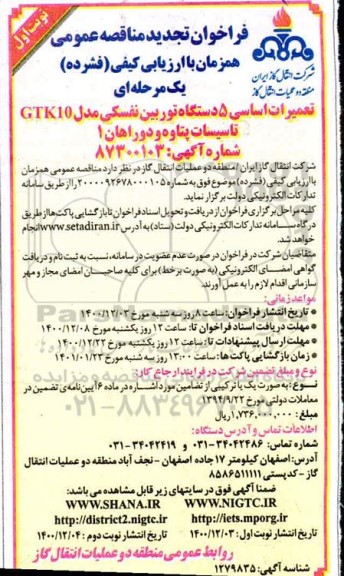 نوبت اول
شرکت انتقال گاز ایران
منطقه دو عملیات انتقال گاز
فراخوان تجدید مناقصه عمومی
همزمان با ارزیابی کیفی (فشرده)
یک مرحله ای
تعمیرات اساسی ۵ دستگاه توربین نفسکی مدل GTK10
تاسیسات پتاوه و دوراهان ۱
شماره آگهی: ۸۷۳۰۰۱۰۳
شرکت انتقال گاز ایران / منطقه دو عملیات انتقال گاز در نظر دارد مناقصه عمومی همزمان
با ارزیابی کیفی (فشرده) موضوع فوق به شماره ۲۰۰۰۰۹۲۶۷۸۰۰۰۱۰۵ را از طریق سامانه
تدارکات الکترونیکی دولت برگزار نماید.
کلیه مراحل برگزاری فراخوان از دریافت و تحویل اسناد فراخوان تا بازگشایی پاکت ها از طریق
درگاه سامانه تدارکات الکترونیکی دولت (ستاد) به آدرس www.setadiran.ir انجام
خواهد شد.
متقاضیان شرکت در فراخوان در صورت عدم عضویت در سامانه، نسبت به ثبت نام و دریافت
گواهی امضای الکترونیکی (به صورت برخط) برای کلیه صاحبان امضای مجاز و مهر
سازمانی اقدام لازم را به عمل آورند.
مواعد زمانی:
* تاریخ انتشار فراخوان: ساعت ۸ روز سه شنبه مورخ ۱۴۰۰/۱۲/۰۳
* مهلت دریافت اسناد فراخوان تا: ساعت ۱۲ روز یکشنبه مورخ ۱۴۰۰/۱۲/۰۸
* مهلت ارسال پیشنهادات تا: ساعت ۱۲ روز یکشنبه مورخ ۱۴۰۰/۱۲/۲۲
* زمان بازگشایی پاکت ها: ساعت ۱۳:۰۰ روز سه شنبه مورخ ۱۴۰۱/۰۱/۲۳
نوع و مبلغ تضمین شرکت در فرایند ارجاع کار:
نوع: به صورت یک یا ترکیبی از تضامین مورد اشاره در ماده ۶ آیین نامه ی تضمین در
معاملات دولتی مورخ ۱۳۹۴/۹/۲۲
مبلغ: ۱,۷۳۶,۰۰۰,۰۰۰ ریال
اطلاعات تماس و آدرس دستگاه:
شماره تماس: ۳۴۰۴۲۴۸۶-۰۳۱ و ۳۴۰۴۲۴۱۹-۰۳۱
آدرس: اصفهان کیلومتر ۱۷ جاده اصفهان - نجف آباد منطقه دو عملیات انتقال
گاز - کدپستی ۸۵۸۶۵۱۱۱۱۱
ضمنا آگهی فوق در سایتهای زیر قابل مشاهده می باشد:
WWW.SHANA.IR WWW.NIGTC.IR
http://district2.nigtc.ir http://iets.mporg.ir
تاریخ انتشار نوبت اول: ۱۴۰۰/۱۲/۰۳ تاریخ انتشار نوبت دوم: ۱۴۰۰/۱۲/۰۴
روابط عمومی منطقه دو عملیات انتقال گاز
شناسه آگهی: ۱۲۷۹۸۳۵